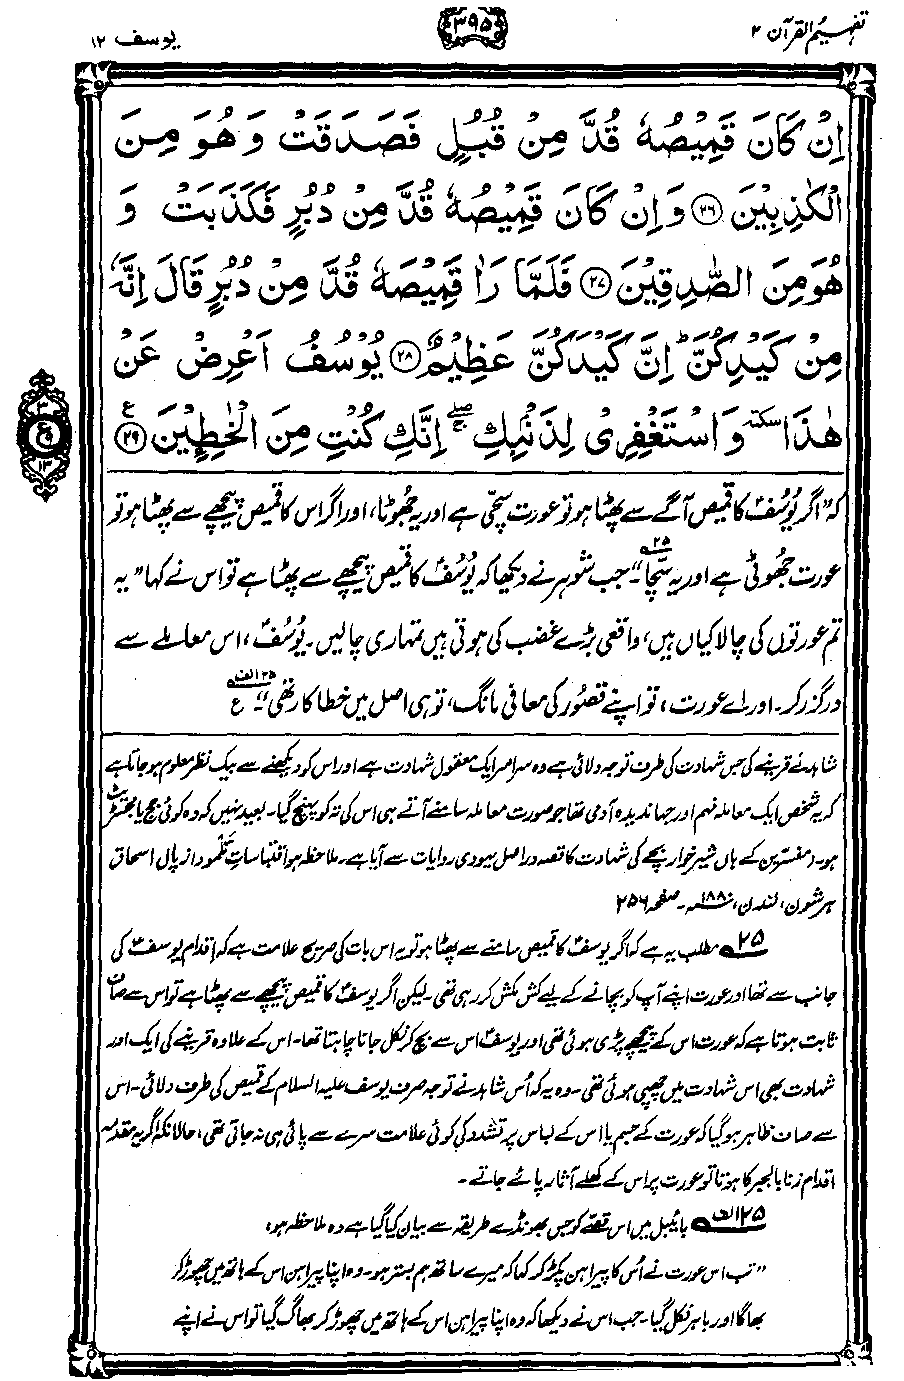 تفہیم القرآن ۲
۳۹۵
یوسف ۱۲
اِنْ كَانَ قَمِيْصُهٗ قُدَّ مِنْ قُبُلٍ فَصَدَقَتْ وَ هُوَ مِنَ
الْكٰذِبِيْنَ ﴿۲۶﴾ وَاِنْ كَانَ قَمِيْصُهٗ قُدَّ مِنْ دُبُرٍ فَكَذَبَتْ وَ
هُوَ مِنَ الصّٰدِقِيْنَ ﴿۲۷﴾ فَلَمَّا رَاٰ قَمِيْصَهٗ قُدَّ مِنْ دُبُرٍ قَالَ اِنَّهٗ
مِنْ كَيْدِكُنَّ ؕ اِنَّ كَيْدَكُنَّ عَظِيْمٌ ﴿۲۸﴾ يُوْسُفُ اَعْرِضْ عَنْ
هٰذَا سكتة وَ اسْتَغْفِرِيْ لِذَنْۢبِكِ ۖۚ اِنَّكِ كُنْتِ مِنَ الْخٰطِـِٕيْنَ ﴿۲۹﴾ ع
۳
ع
۹
۱۳
کہ “اگر یُوسُفؑ کا قمیص آگے سے پھٹا ہو تو عورت سچّی ہے اور یہ جُھوٹا، اور اگر اس کا قمیص پیچھے سے پھٹا ہو تو
عورت جھُوٹی ہے اور یہ سچّا۲۵”۔ جب شوہر نے دیکھا کہ یُوسُفؑ کا قمیص پیچھے سے پھٹا ہے تو اس نے کہا “یہ
تم عورتوں کی چالاکیاں ہیں، واقعی بڑے غضب کی ہوتی ہیں تمہاری چالیں۔ یُوسُفؑ، اس معاملے سے
درگزر کر۔ اور اے عورت، تو اپنے قصُور کی معافی مانگ، تو ہی اصل میں خطا کار تھی۲۵الف”۔ ع
شاہد نے قرینے کی جس شہادت کی طرف توجہ دلائی ہے وہ سراسر ایک معقول شہادت ہے اور اس کو دیکھنے سے بیک نظر معلوم ہو جاتا ہے
کہ یہ شخص ایک معاملہ فہم اور جہاندیدہ آدمی تھا جو صورت معاملہ سامنے آتے ہی اس کی تہ کو پہنچ گیا۔ بعید نہیں کہ وہ کوئی جج یا مجسٹریٹ
ہو۔ (مفسّرین کے ہاں شیر خوار بچے کی شہادت کا قصہ دراصل یہودی روایات سے آیا ہے۔ ملاحظہ ہو اقتباساتِ تَلْمُود از پال اسحاق
ہرشون، لندن، ۱۸۸۰ء۔ صفحہ ۲۵۶
۲۵ مطلب یہ ہے کہ اگر یوسفؑ کا قمیص سامنے سے پھٹا ہو تو یہ اس بات کی صریح علامت ہے کہ اقدام یوسفؑ کی
جانب سے تھا اور عورت اپنے آپ کو بچانے کے لیے کش مکش کر رہی تھی۔ لیکن اگر یوسفؑ کا قمیص پیچھے سے پھٹا ہے تو اس سے صاف
ثابت ہوتا ہے کہ عورت اس کے پیچھے پڑی ہوئی تھی اور یوسفؑ اس سے بچ کر نکل جانا چاہتا تھا۔ اس کے علاوہ قرینے کی ایک اور
شہادت بھی اس شہادت میں چھپی ہوئی تھی۔ وہ یہ کہ اُس شاہد نے توجہ صرف یوسف علیہ السلام کے قمیص کی طرف دلائی۔ اس
سے صاف ظاہر ہو گیا کہ عورت کے جسم یا اس کے لباس پر تشدد کی کوئی علامت سرے سے پائی ہی نہ جاتی تھی، حالانکہ اگر یہ مقدمہ
اقدام زنا بالجبر کا ہوتا تو عورت پر اس کے کھلے آثار پائے جاتے۔
۲۵الف بائیبل میں اس قصّے کو جس بھونڈے طریقہ سے بیان کیا گیا ہے وہ ملاحظہ ہو:
“تب اس عورت نے اُس کا پیراہن پکڑ کر کہا کہ میرے ساتھ ہم بستر ہو۔ وہ اپنا پیراہن اس کے ہاتھ میں چھوڑ کر
بھاگا اور باہر نکل گیا۔ جب اس نے دیکھا کہ وہ اپنا پیراہن اس کے ہاتھ میں چھوڑ کر بھاگ گیا تو اس نے اپنے